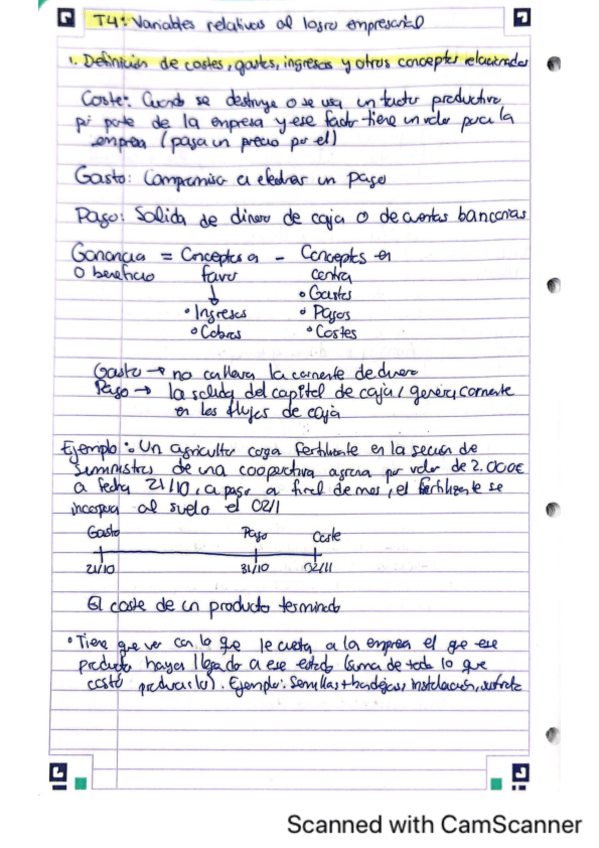 T4: Variables relativas al logro empresarial
1. Definición de costes, gastos, ingresos y otros conceptos relacionados
Coste: Cuando se destruye o se usa un factor productivo
por parte de la empresa y ese factor tiene un valor para la
empresa (paga un precio por el)
Gasto: Compromiso a efectuar un pago
Pago: Salida de dinero de caja o de cuentas bancarias
Ganancia = Conceptos a - Conceptos en
O beneficio favor contra
↓ • Gastos
• Ingresos • Pagos
• Cobros • Costes
Gasto → no conlleva la corriente de dinero
Pago → la salida del capital de caja / genera corriente
en los flujos de caja
Ejemplo: Un agricultor carga fertilizante en la sección de
suministros de una cooperativa agraria por valor de 2.000€
a fecha 21/10, a pagar a final de mes, el fertilizante se
incorpora al suelo el 02/11
Gasto Pago Coste
21/10 31/10 02/11
El coste de un producto terminado
• Tiene que ver con lo que le cuesta a la empresa el que ese
producto haya llegado a ese estado (suma de todo lo que
costó producirlo). Ejemplo: Semillas + bandejas, instalación, sustrato
Scanned with CamScanner